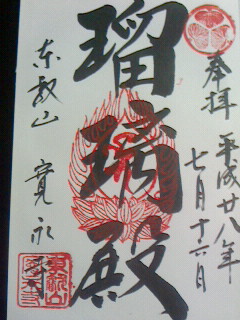 奉拝
平成廿八年
七月十六日
瑠璃殿
東叡山 寛永寺